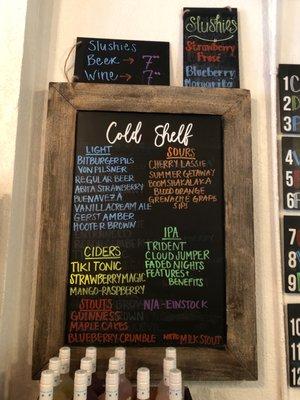 Slushies
Beer → 7⁰⁰
Wine → 7⁰⁰
Slushies
Strawberry
Frosé
Blueberry
Margarita
Cold Shelf
LIGHT
BITBURGER PILS
VON PILSNER
REGULAR BEER
ABITA STRAWBERRY
BUENAVEZA
VANILLA CREAM ALE
GERST AMBER
HOOTER BROWN
SOURS
CHERRY LASSIE
SUMMER GETAWAY
BOOMSHAKALAKA
BLOOD ORANGE
GRENACHE GRAPE
CIDERS
TIKI TONIC
STRAWBERRY MAGIC
MANGO-RASPBERRY
IPA
TRIDENT
CLOUD JUMPER
FADED NIGHTS
FEATURES &
BENEFITS
STOUTS
GUINNESS
MAPLE CAKES
BLUEBERRY CRUMBLE
N/A-EINSTOCK
NITRO MILK STOUT
1
2
3
4
5
6
7
8
9
10